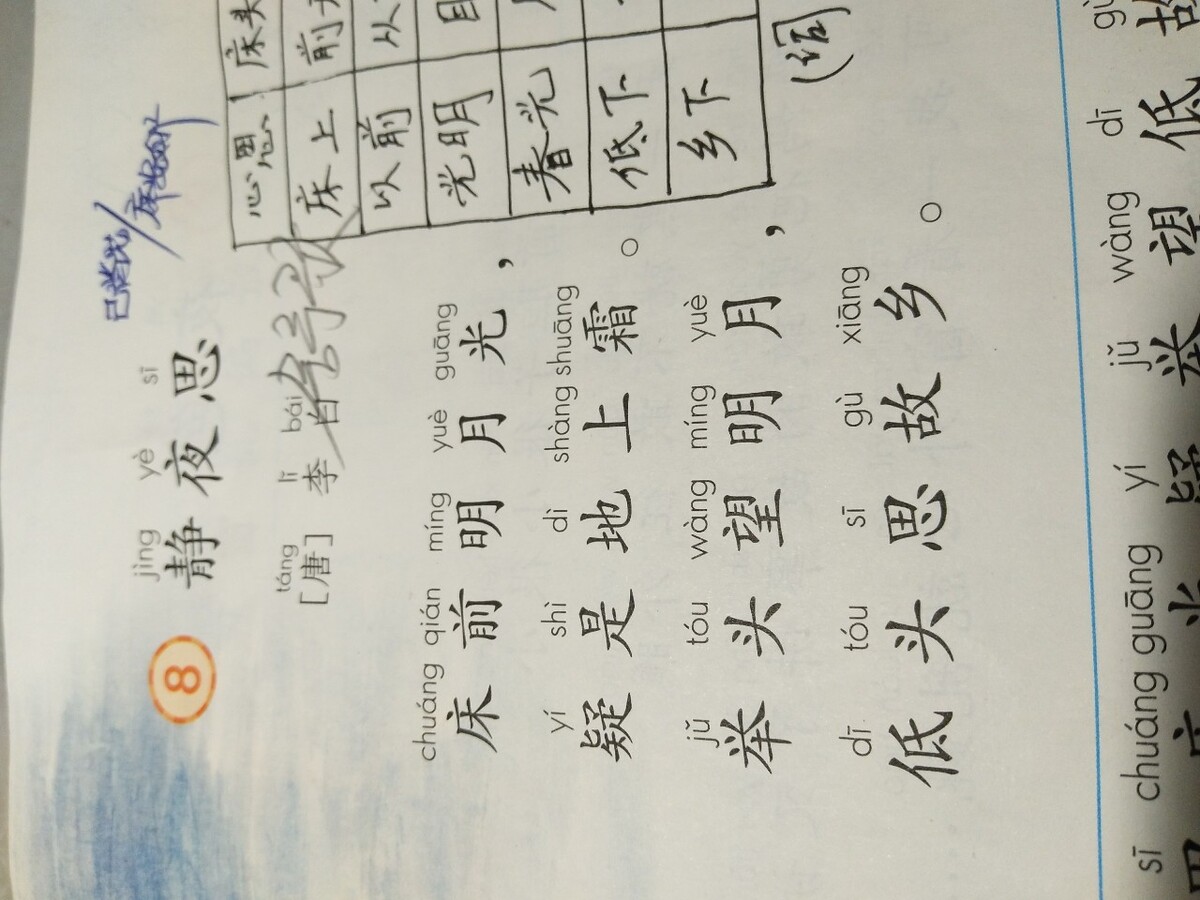 8
jìng yè sī
静夜思
táng lǐ bái
[唐] 李白
chuáng qián míng yuè guāng
床前明月光，
yí shì dì shàng shuāng
疑是地上霜。
jǔ tóu wàng míng yuè
举头望明月，
dī tóu sī gù xiāng
低头思故乡。
心思 床头
床上 前
以前 从
光明 目
春光
低下
乡下
(词
sī chuáng guāng yí jǔ wàng dī gù
思 床 光 疑 举 望 低 故